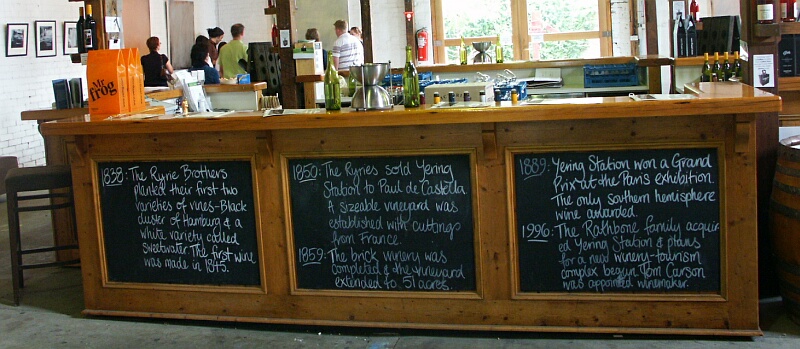 Mr
frog
1838: The Ryrie Brothers
planted their first two
varieties of vines-Black
cluster of Hamburg & a
white variety called
sweetwater. The first wine
was made in 1845.
1850: The Ryries sold Yering
Station to Paul de Castella
A sizeable vineyard was
established with cuttings
from France.
1859: The brick winery was
completed & the vineyard
extended to 51 acres.
1889: Yering Station won a Grand
Prix at the Paris exhibition.
The only southern hemisphere
wine awarded.
1996: The Rathbone family acquir
ed Yering Station & plans
for a new winery-tourism
complex begun. Tom Carson
was appointed winemaker.